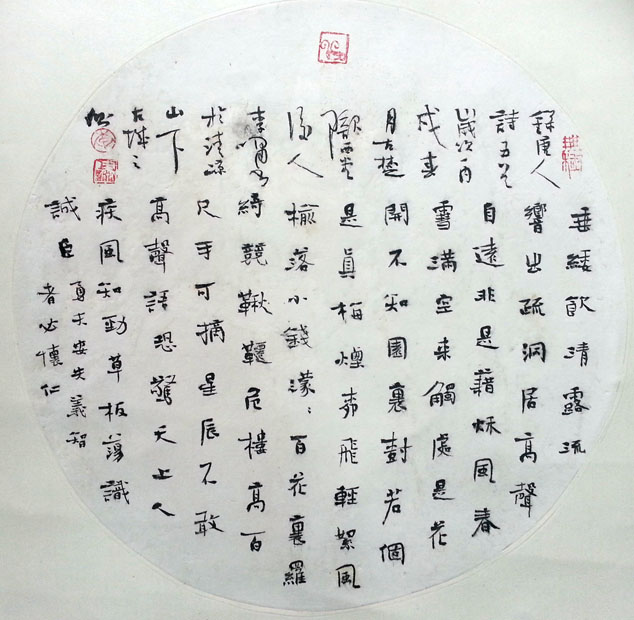 垂緌飲清露流
響出疏洞居高聲
自遠非是藉秌風春
雪滿空來觸處是花
開不知園裏尌若個
是真梅煙柳飛輕絮風
榆落小錢濛:百花裏羅
綺競鞦韆危樓高百
尺手可摘星辰不敢
高聲語恐驚天上人
疾風知勁草板蕩識
誠臣
勇夫安失義智
者必懷仁
錄唐人
詩五首
歲次丙
戌春
月古楚
西堂
人
李
於清源
山下
古城之